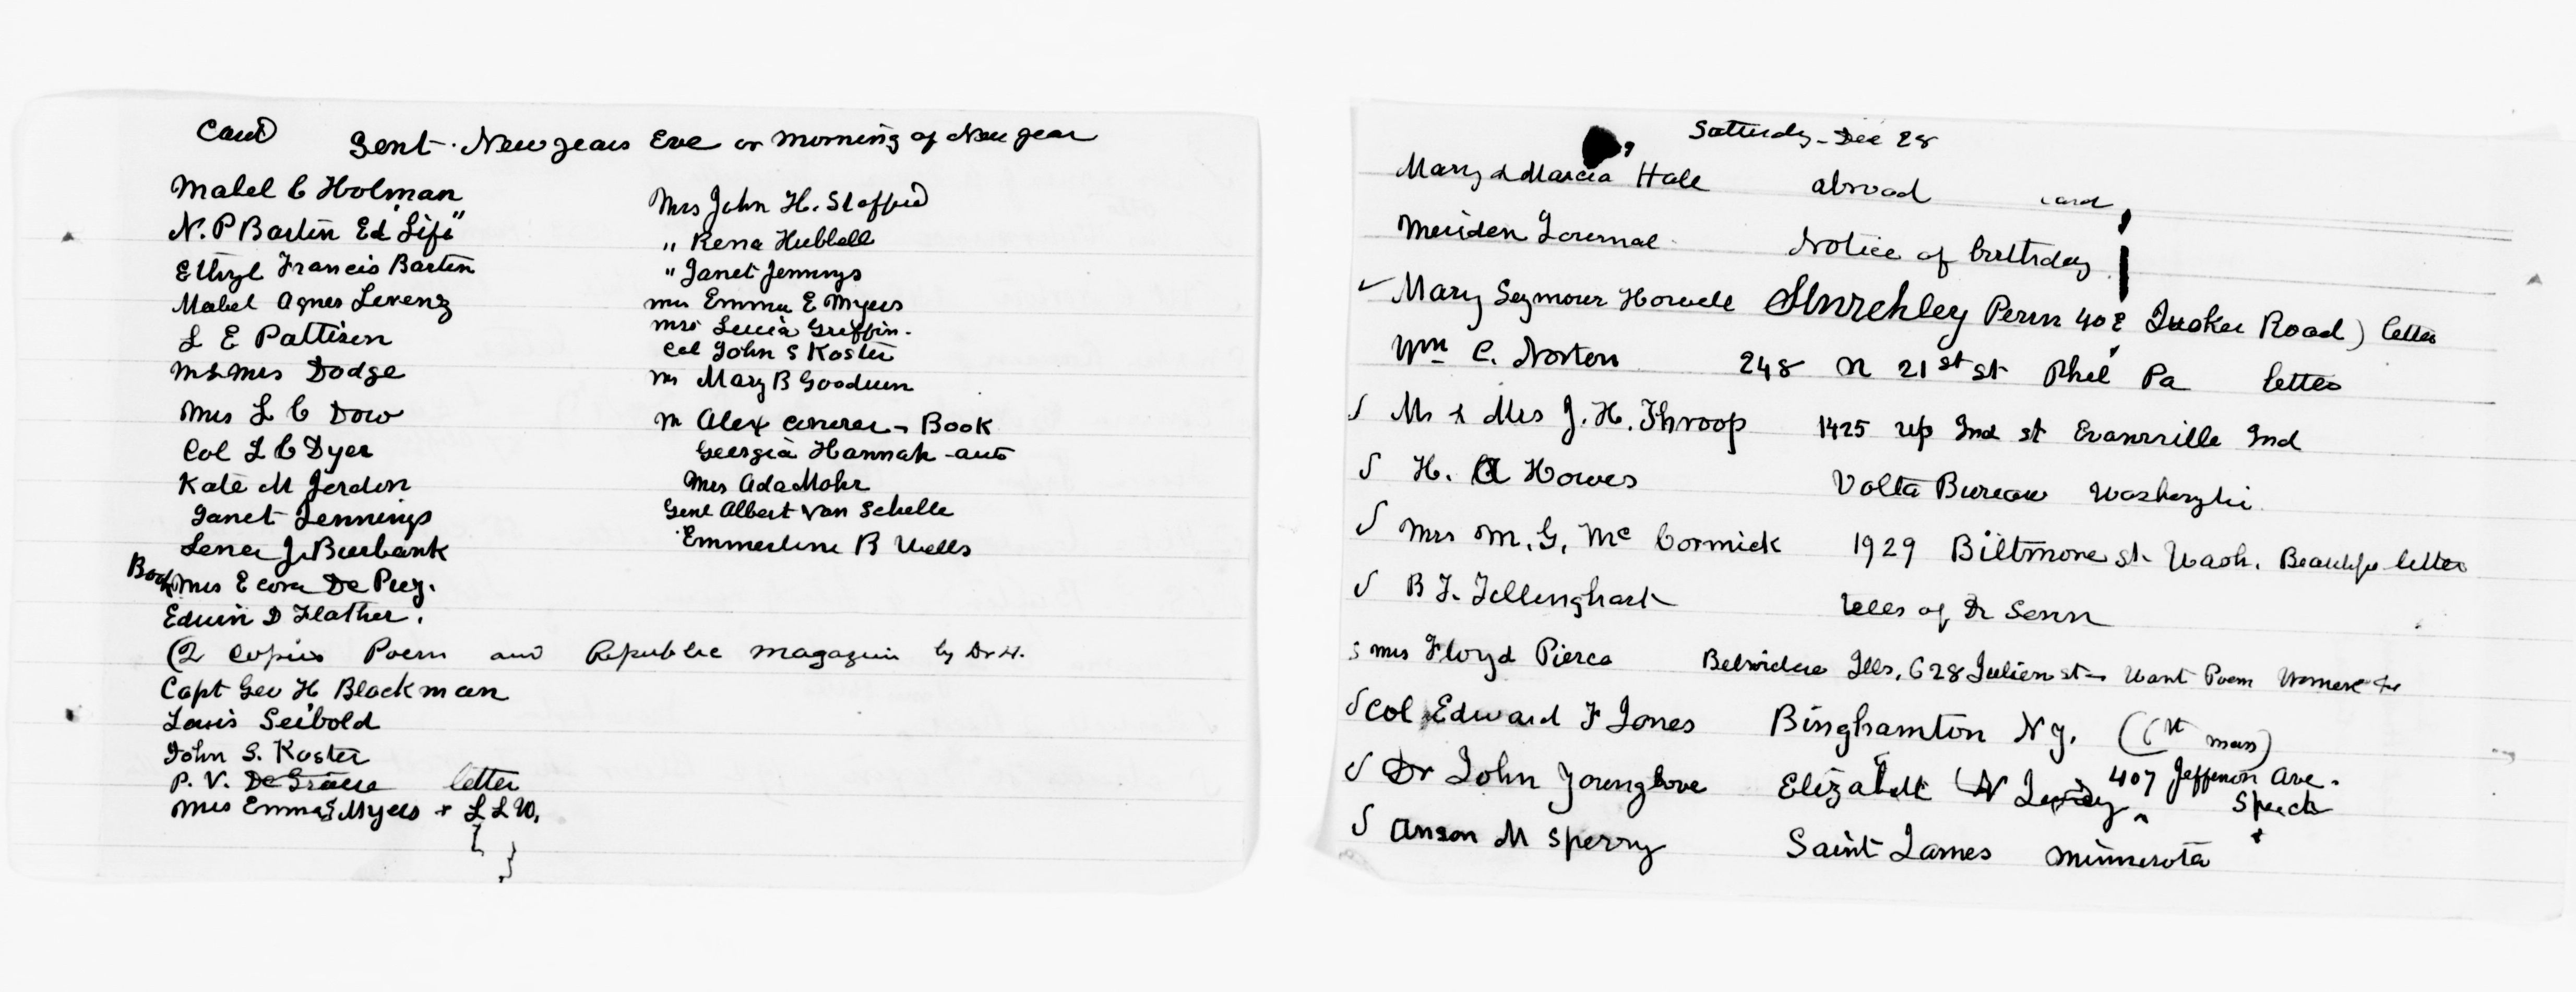 Card Sent. New years Eve or morning of New year
Mabel C Holman
N. P Bartin Ed "Life"
Ethyl Francis Bartin
Mabel Agnes Lorenz
L E Pattison
M & Mrs Dodge
Mrs L C Dow
Col L C Dyer
Kate M Jordon
Janet Jennings
Lena J. Burbank
Book Mrs E Cora De Puy.
Edwin D Flather.
Mrs John H. Stafford
" Rena Hubbell
" Janet Jennings
Mrs Emma E Myers
Mrs Lucia Griffin.
Col John S Koster
Mrs Mary B Goodwin
M Alex - Book
Georgia Hannah - auto
Mrs Ada Mohr
Genl Albert Van Schelle
Emmerline B Wells
(2 copies Poem and Republic magazine by Dr H.
Capt Geo H Blackman
Louis Seibold
John S. Koster
P. V. De Graw letter
Mrs Emma E Myers + L L W.
Satturdy - Dec 28
Mary & Marcia Hale abroad card
Meriden Journal Notice of birthday
Mary Seymour Howell Shurchley Penn 408 Quaker Road) letter
Wm C. Norton 248 N 21st St Phil Pa letter
Mr & Mrs J. H. Throop 1425 up Ind st Evansville Ind
H. A Howes Volta Bureau Washington
Mrs M. G. Mc Cormick 1929 Biltmore st. Wash. Beautiful letter
B F. Tillinghast tells of Dr Senn
Mrs Floyd Pierce Belvidere Ills, 628 Julien st - Want Poem Women &c
Col Edward F Jones Binghamton N Y. (6th mass)
Dr John Younglove Elizabeth N Jersey 407 Jefferson Ave. Speech
Anson M Sperry Saint James Minnesota +